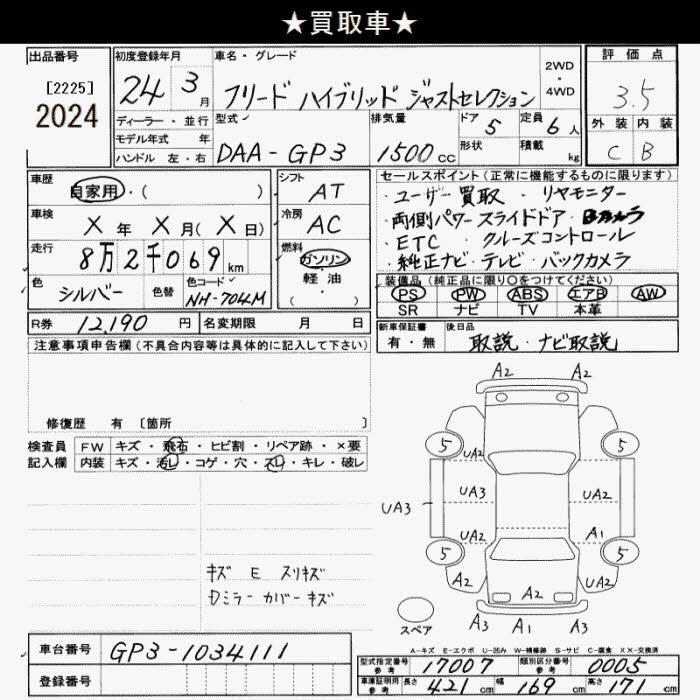 ★買取車★
出品番号
[2225]
2024
初度登録年月
24 3月
車名・グレード
フリード ハイブリッド ジャストセレクション
2WD・4WD
評価点
3.5
外装 内装
C B
ディーラー・並行
モデル年式 年
ハンドル 左・右
型式
DAA-GP3
排気量
1500cc
ドア 5
形状
定員 6人
積載 kg
車歴
自家用・( )
車検
X年 X月(X日)
走行
8万2千069km
色
シルバー
色替
色コード
NH-704M
シフト
AT
冷房
AC
燃料
ガソリン
軽油
( )
セールスポイント(正常に機能するものに限ります)
・ユーザー買取 ・リヤモニター
・両側パワースライドドア・Bカメラ
・ETC ・クルーズコントロール
・純正ナビ・テレビ・バックカメラ
装備品(純正品に限り○をつけてください)
PS PW ABS エアB AW
SR ナビ TV 本革
R券 12,190円
名変期限 月 日
新車保証書
有・無
後日品
取説・ナビ取説
注意事項申告欄(不具合内容等は具体的に記入して下さい)
修復歴 有 [箇所 ]
検査員記入欄
FW キズ・飛石・ヒビ割・リペア跡・×要
内装 キズ・汚レ・コゲ・穴・スレ・キレ・破レ
キズ E スリキズ
Dミラーカバーキズ
A2
A2
5
5
UA2
UA3
UA3
UA2
UA2
A1
5
5
A2
UA2
A2
スペア
A3 A1 A3
A-キズ E-エクボ U-凹み W-補修跡 S-サビ C-腐食 XX-交換済
車台番号
GP3-1034111
登録番号
型式指定番号 参考
17007
類別区分番号 参考
0005
車庫証明用 参考
長さ 421cm 幅 169cm 高さ 171cm